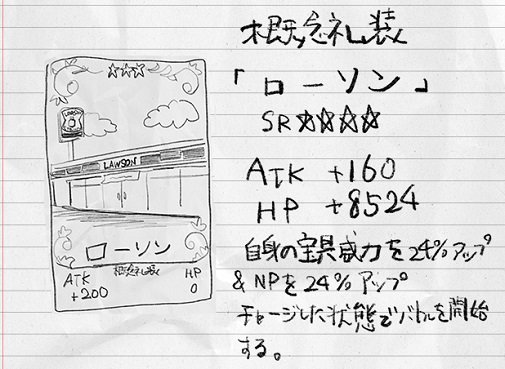 概念礼装
「ローソン」
SR☆☆☆☆
ATK +160
HP +8524
自身の宝具威力を24%アップ
&NPを24%アップ
チャージした状態でバトルを開始
する。
☆☆☆
LAWSON
LAWSON
ローソン
概念礼装
ATK
+200
HP
0